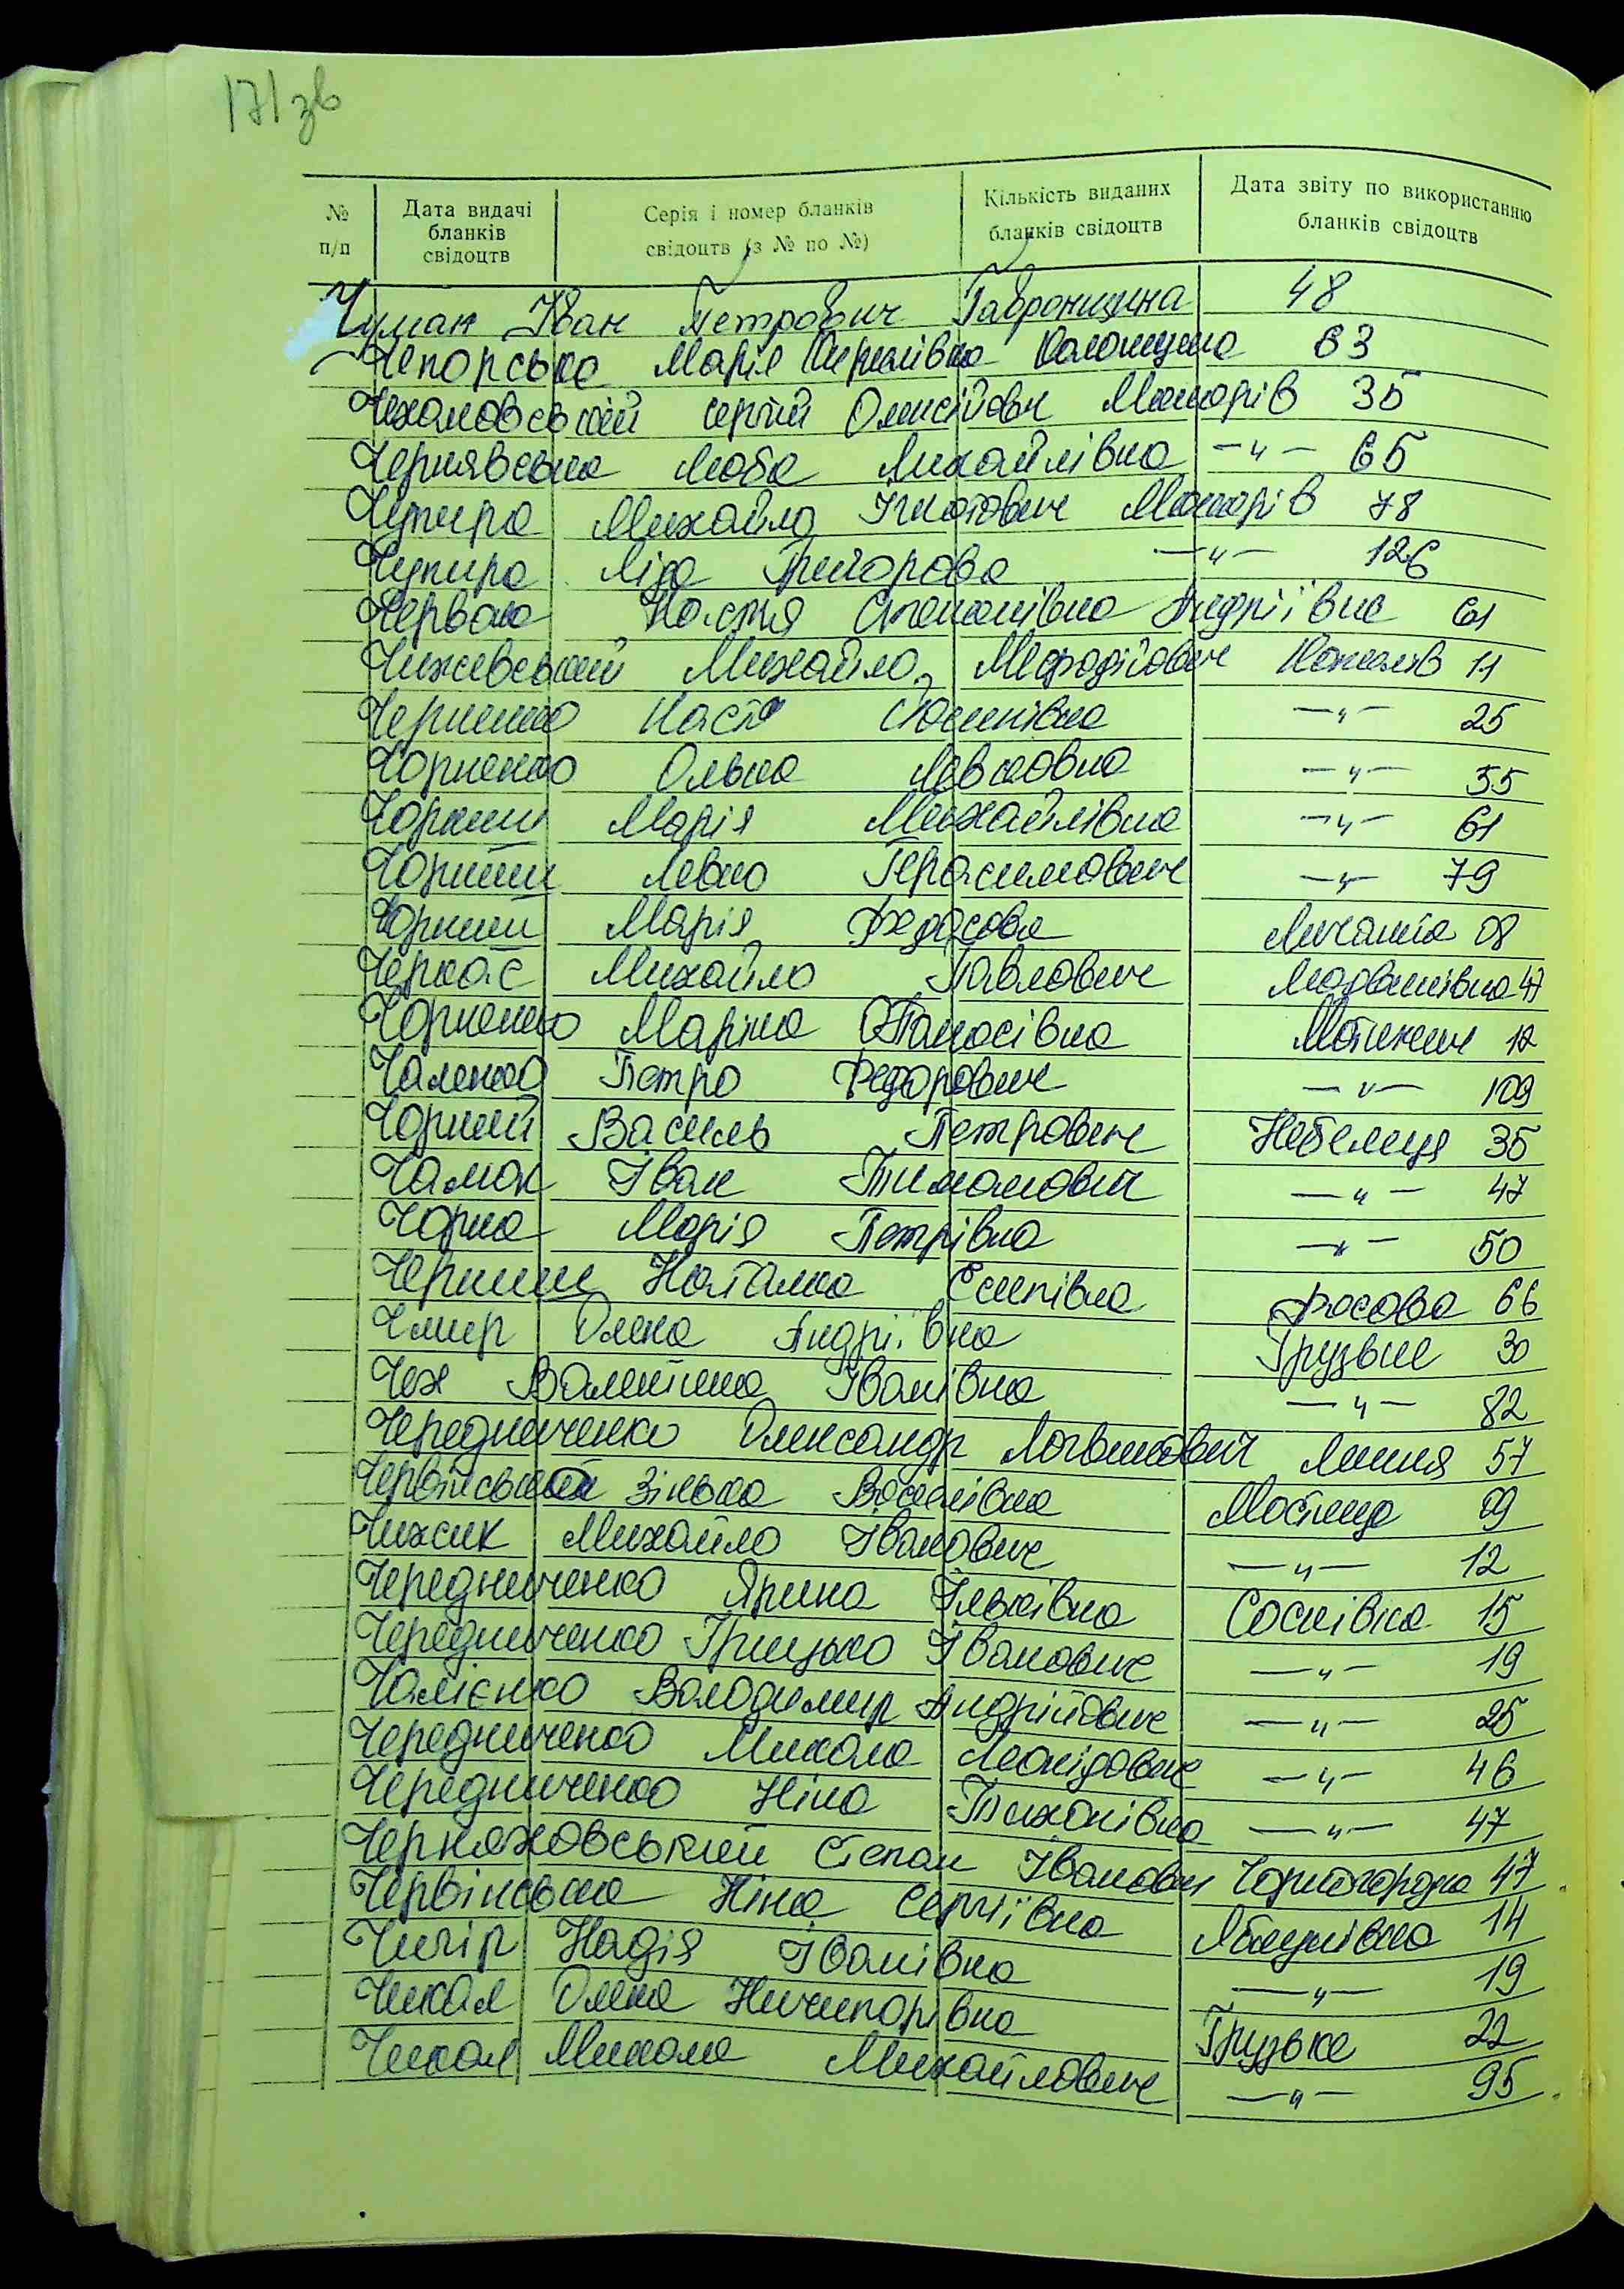 171 зв
№ п/п
Дата видачі бланків свідоцтв
Серія і номер бланків свідоцтв (з № по №)
Кількість виданих бланків свідоцтв
Дата звіту по використанню бланків свідоцтв
Чуман Іван Петрович Гавронщина 48
Чепорська Марія Кирилівна Колонщина 63
Чехановський Сергій Олексійович Макарів 35
Чернявська Люба Михайлівна —"— 65
Чупира Михайло Ігнатович Макарів 78
Чупира Ліда Григорова —"— 126
Настя Степанівна Андріївка 61
Чижевський Михайло Мефодійович Копилів 11
Черненко Настя Йосипівна —"— 25
Чорненко Ольга Левковна —"— 55
Чорний Марія Михайлівна —"— 61
Чорний Левко Герасимович —"— 79
Чорний Марія Федосова Личанка 08
Черкас Михайло Павлович Людвинівка 47
Чорненко Марина Опанасівна Мотижин 12
Чаленко Петро Федорович —"— 109
Чорний Василь Петрович Небелиця 35
Чамак Іван Тимофович —"— 47
Чорна Марія Петрівна —"— 50
Черниш Наталка Єсипівна Фасова 66
Чмир Олена Андріївна Грузьке 30
Чех Валентина Іванівна —"— 82
Чередниченко Олександр Логвинович Липня 57
Червінський Зінька Василівна Мостище 09
Чижик Михайло Іванович —"— 12
Чередниченко Ярина Ільківна Соснівка 15
Чередниченко Грицько Іванович —"— 19
Чалієнко Володимир Андрійович —"— 25
Чередниченко Микола Леонідович —"— 46
Чередниченко Ніна Тихонівна —"— 47
Черняховський Степан Іванович Чорногородка 47
Червінська Ніна Сергіївна Яблунівка 14
Чигір Надія Іванівна —"— 19
Чикал Олена Ничипорівна Грузьке 22
Чикал Микола Михайлович —"— 95